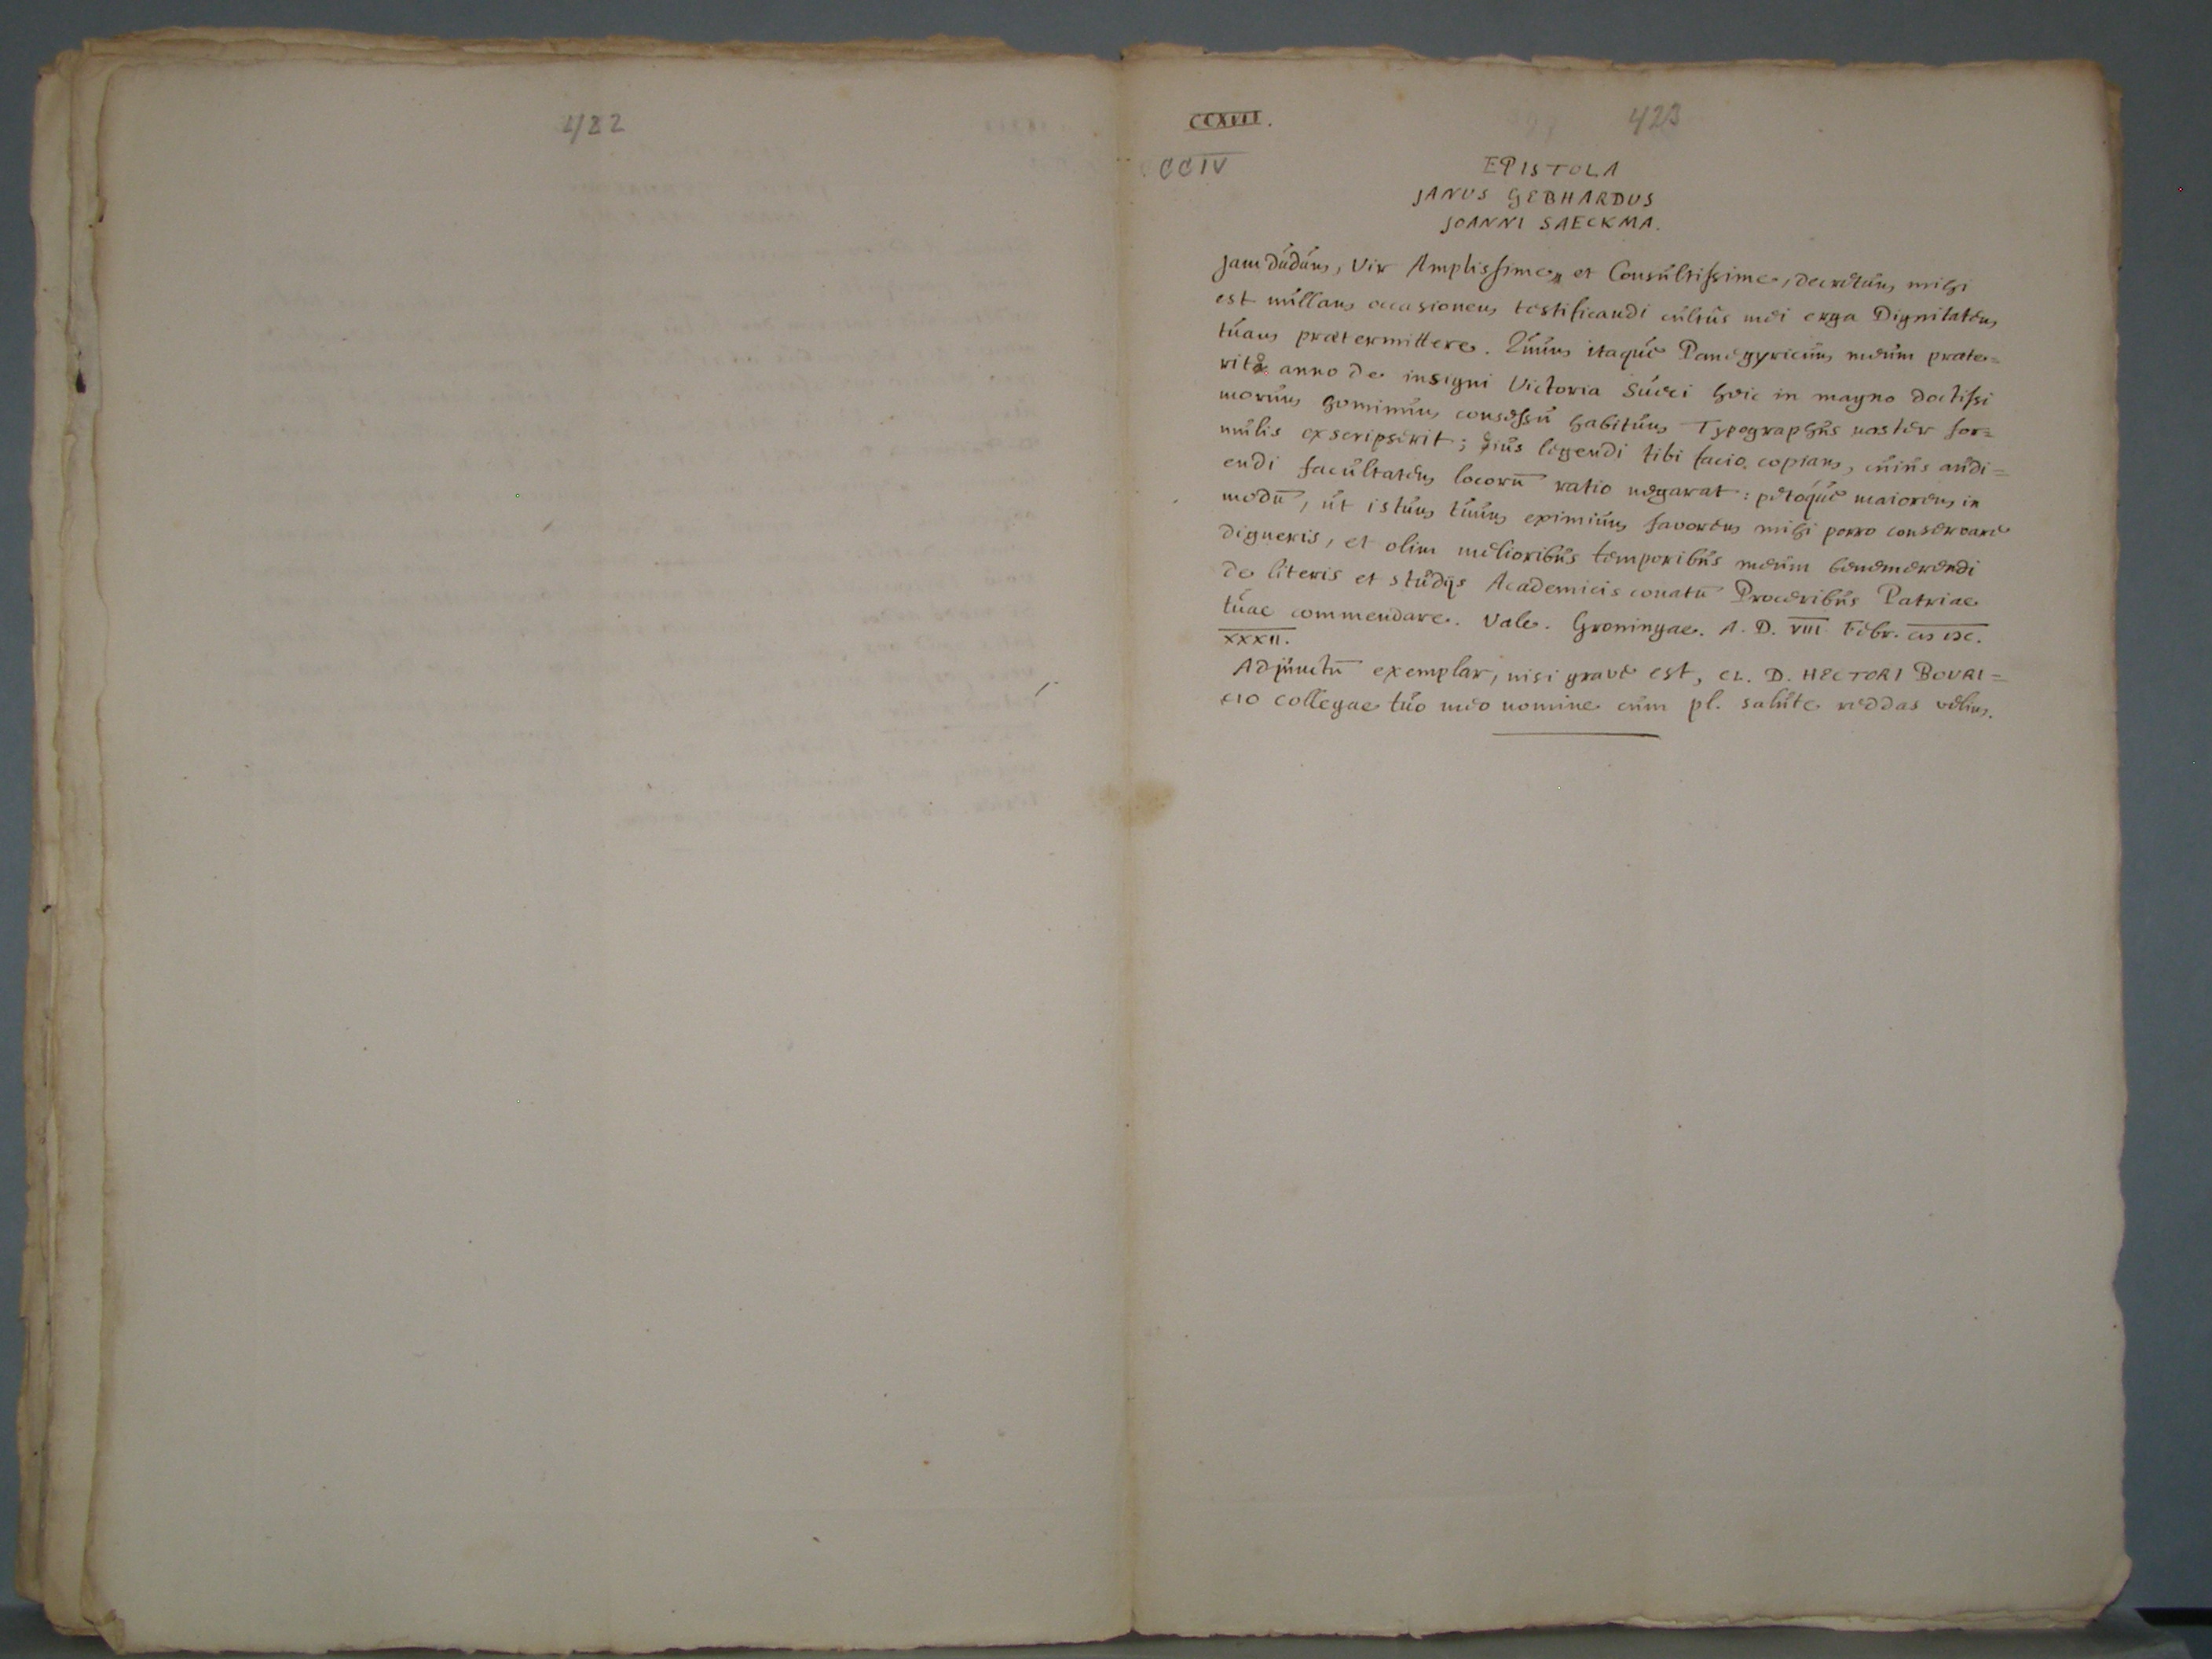 422
CCXVII.
423
CCIV
EPISTOLA
JANUS GEBHARDUS
JOANNI SAECKMA.
Jam dudum, Vir Amplissime, et Consultissime, decretum mihi
est nullam occasionem testificandi cultus mei erga Dignitatem
tuam praetermittere. Quum itaque Panegyricum meum praete=
rito anno de insigni Victoria Sueci hoic in magno doctissi
morum hominum consessu habitum Typographus noster for=
mulis exscripserit; eius legendi tibi facio copiam, cuius audi=
endi facultatem locorū ratio negarat: petoque maiorem in
modū, ut istum tuum eximium favorem mihi porro conservare
digneris, et olim melioribus temporibus meum benemerendi
de literis et studijs Academicis conatū Proceribus Patriae
tuae commendare. Vale. Groningae. A. D. VIII Febr. CIƆ IƆC.
XXXII.
Adjunctū exemplar, nisi grave est, CL. D. HECTORI BOURI=
CIO collegae tuo meo nomine cum pl. salute reddas velim.